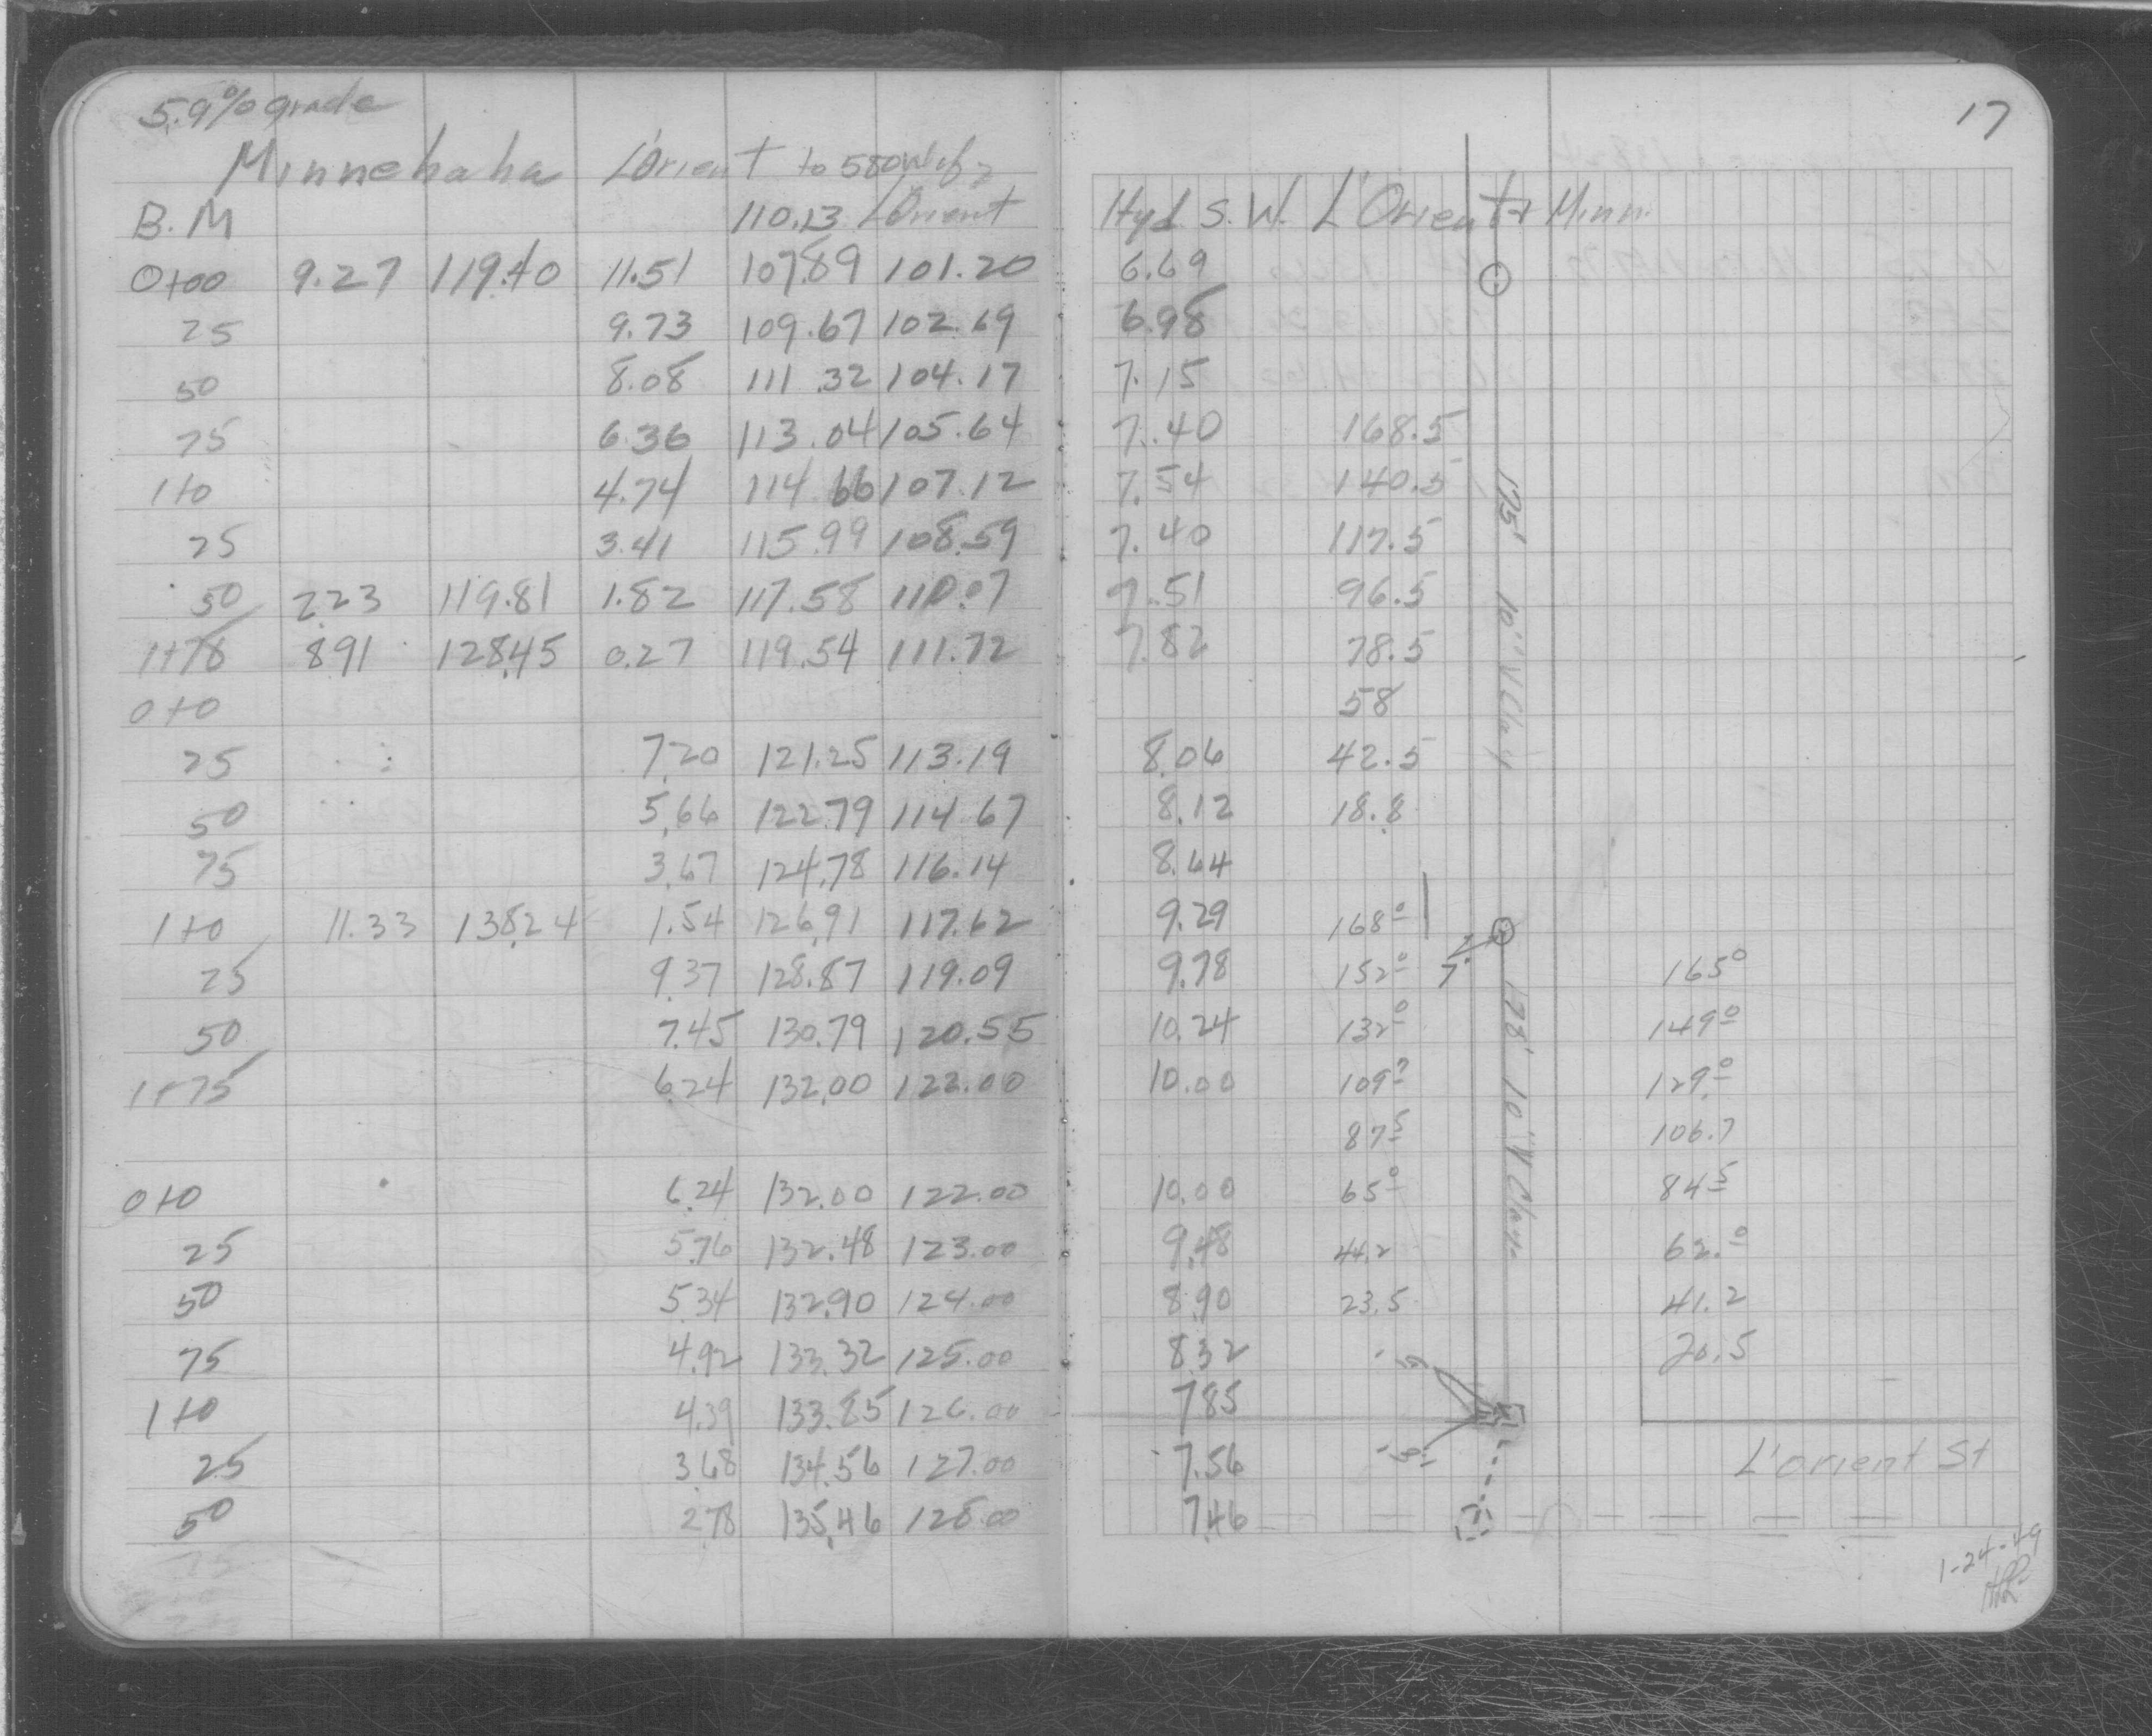 5.9% grade
17
Minnehaha L'Orient to 580 W of
B.M 110.13 L'Orient Hyd. S.W. L'Orient + Minn.
0+00 9.27 119.40 11.51 107.89 101.20 6.69
25 9.73 109.67 102.69 6.98
50 8.08 111.32 104.17 7.15
75 6.36 113.04 105.64 7.40 168.5
1+0 4.74 114.66 107.12 7.54 140.5
25 3.41 115.99 108.59 7.40 117.5
50 2.23 119.81 1.82 117.58 110.07 7.51 96.5
1+78 8.91 128.45 0.27 119.54 111.72 7.82 78.5
0+0 58
25 7.20 121.25 113.19 8.06 42.5
50 5.66 122.79 114.67 8.12 18.8
75 3.67 124.78 116.14 8.64
1+0 11.33 138.24 1.54 126.91 117.62 9.29 168º
25 9.37 128.87 119.09 9.78 152º 7' 165º
50 7.45 130.79 120.55 10.24 132º 149º
1+75 6.24 132.00 122.00 10.00 109? 129º
87⁵ 106.7
0+0 6.24 132.00 122.00 10.00 65º 84⁵
25 5.76 132.48 123.00 9.48 44.2 62.º
50 5.34 132.90 124.00 8.90 23.5 41.2
75 4.92 133.32 125.00 8.32 20.5
1+0 4.39 133.85 126.00 7.85
25 3.68 134.56 127.00 7.56 L'Orient St
50 2.78 135.46 128.00 7.46
175' 10" V Clay
178' 10" V Clay
1-24-49